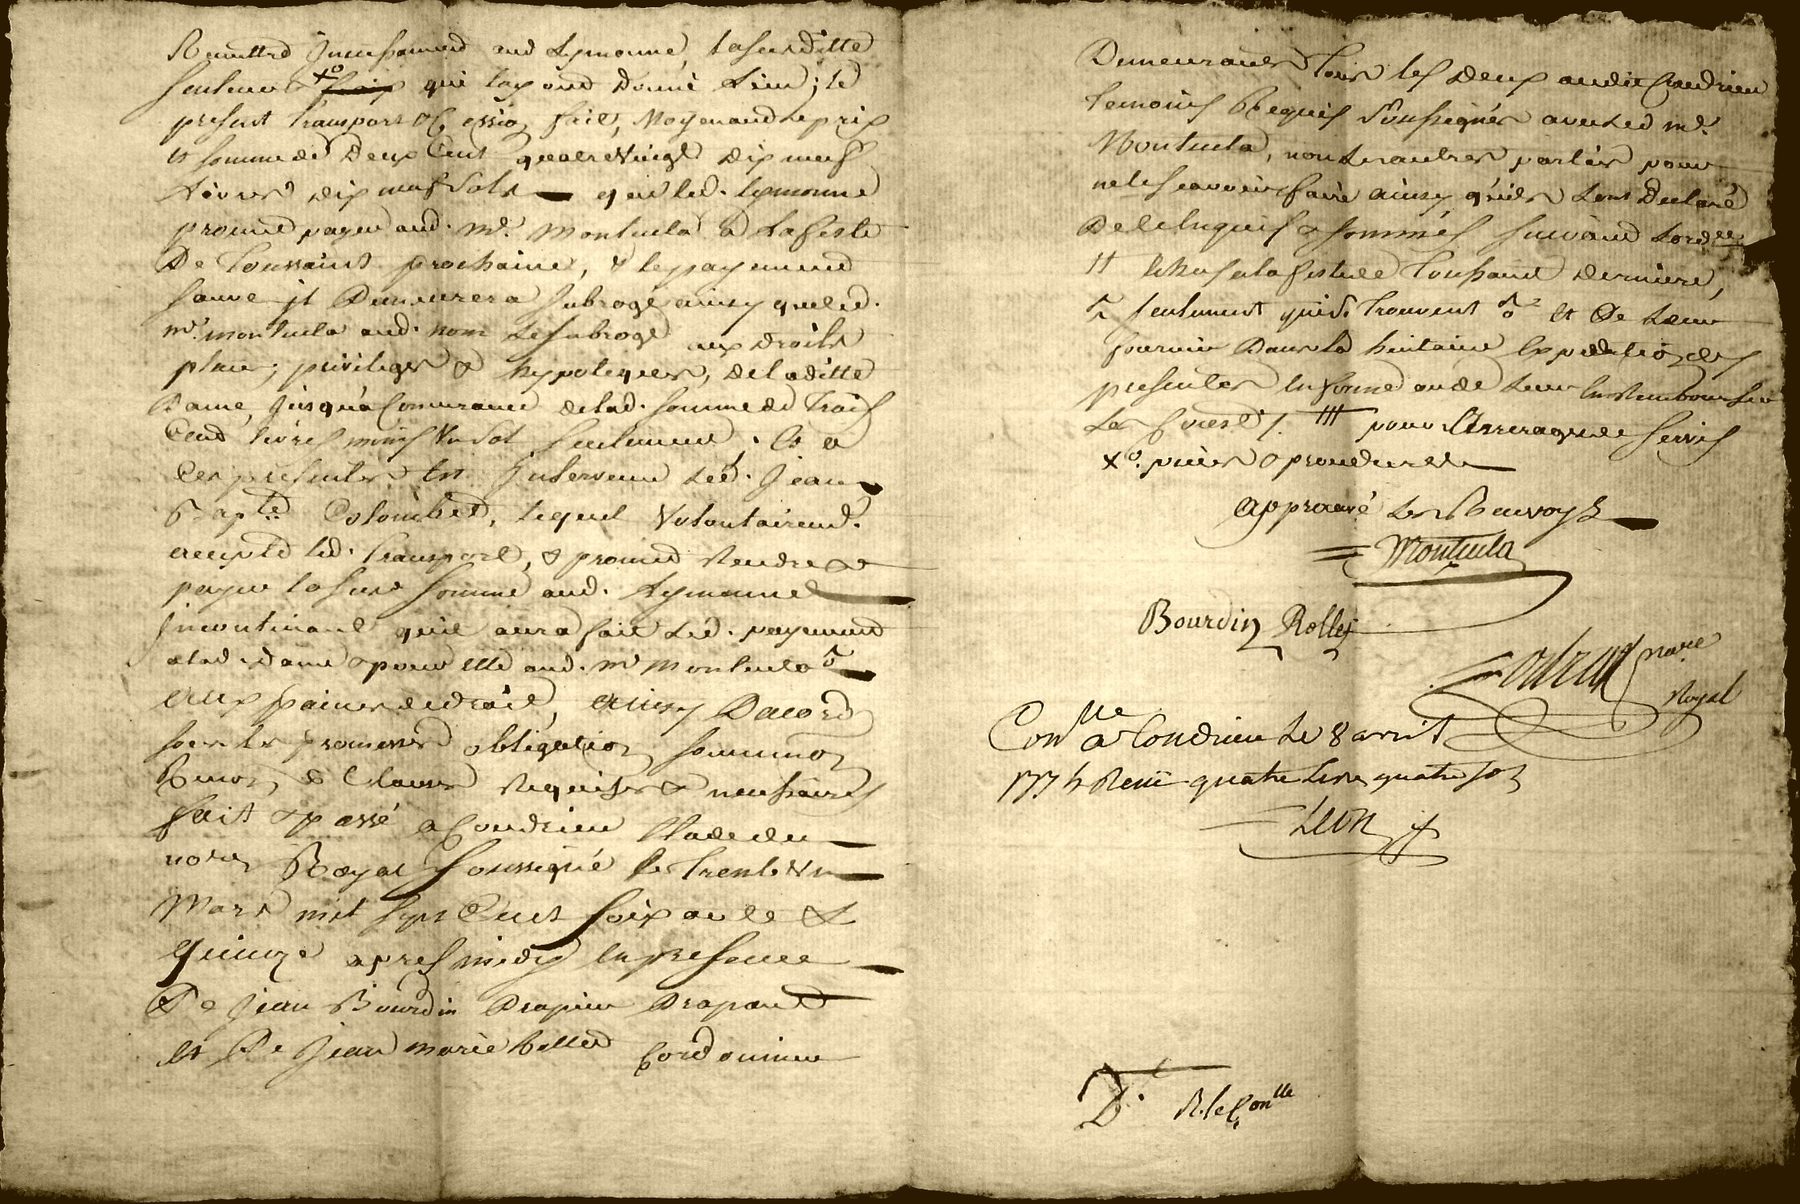 Remettre Incessament aud Lymonne, lasusditte
sentence x° frais qui luy ont donné Lieu; le
present transport et cession fait, Moyenand le prix
et somme de Deux Cent quatre Vingt Dix neuf
Livres dix neuf sols que led. Lymonne
promed payer aud. mr. Montuela a La feste
De Toussaint prochaine, & le payement
sauve jl Demeurera subrogé ainsy que led.
mr. montuela aud. nom Le subroge aux droits
place, privileges & hypoteques, de laditte
Dame, Jusqu'a Concurance de lad. somme de Trois
Cend livres moins Un sol seulement; Et a
Ces presentes Est Intervenu led. Jean
Baptte Colombet, lequel Volontairemt.
accepte led. transport, & promed Rendre &
payer la susd somme aud. Lymonne
Jncontinant qu'il aura fait led. payement
a lad. dame & pour Elle aud. mr Montuela
aux paines de droit, ainsy D'acord
sous les promesses obligation soumission
Renon. & Clauses Requises & necessaires
fait & passé a Condrieu Etude du
nore Royal soussigné le trente Un
Mars mil sept Cent soixante &
quinze apres midy En presence
De Jean Bourdin Drapier Drapant
et De Jean marie Rollet Cordonnier
Demeurants tous les deux audit Condrieu
temoins Requis soussignés avec led mr.
Montuela, non les autres parties pour
ne le scavoir faire ainsy qu'ils L'ont Declaré
De ce Enquis & sommés suivand L'ordce
tt Echus a la feste de Toussaint derniere,
seulement qui s. trouvent et De Leur
fournir Dans la huitaine Expedition des
presentes En forme and de Leur En Rembourser
Les Couts /. ttt pour l'arrerages de servis
x°. pieces & procedures
approuvé Les Renvoys
Montuela
Bourdin Rollet
nore
Royal
Conlle a Condrieu le 8 avril
1775 Reçu quatre livre quatre sols
Leon
D. R. le Conlle